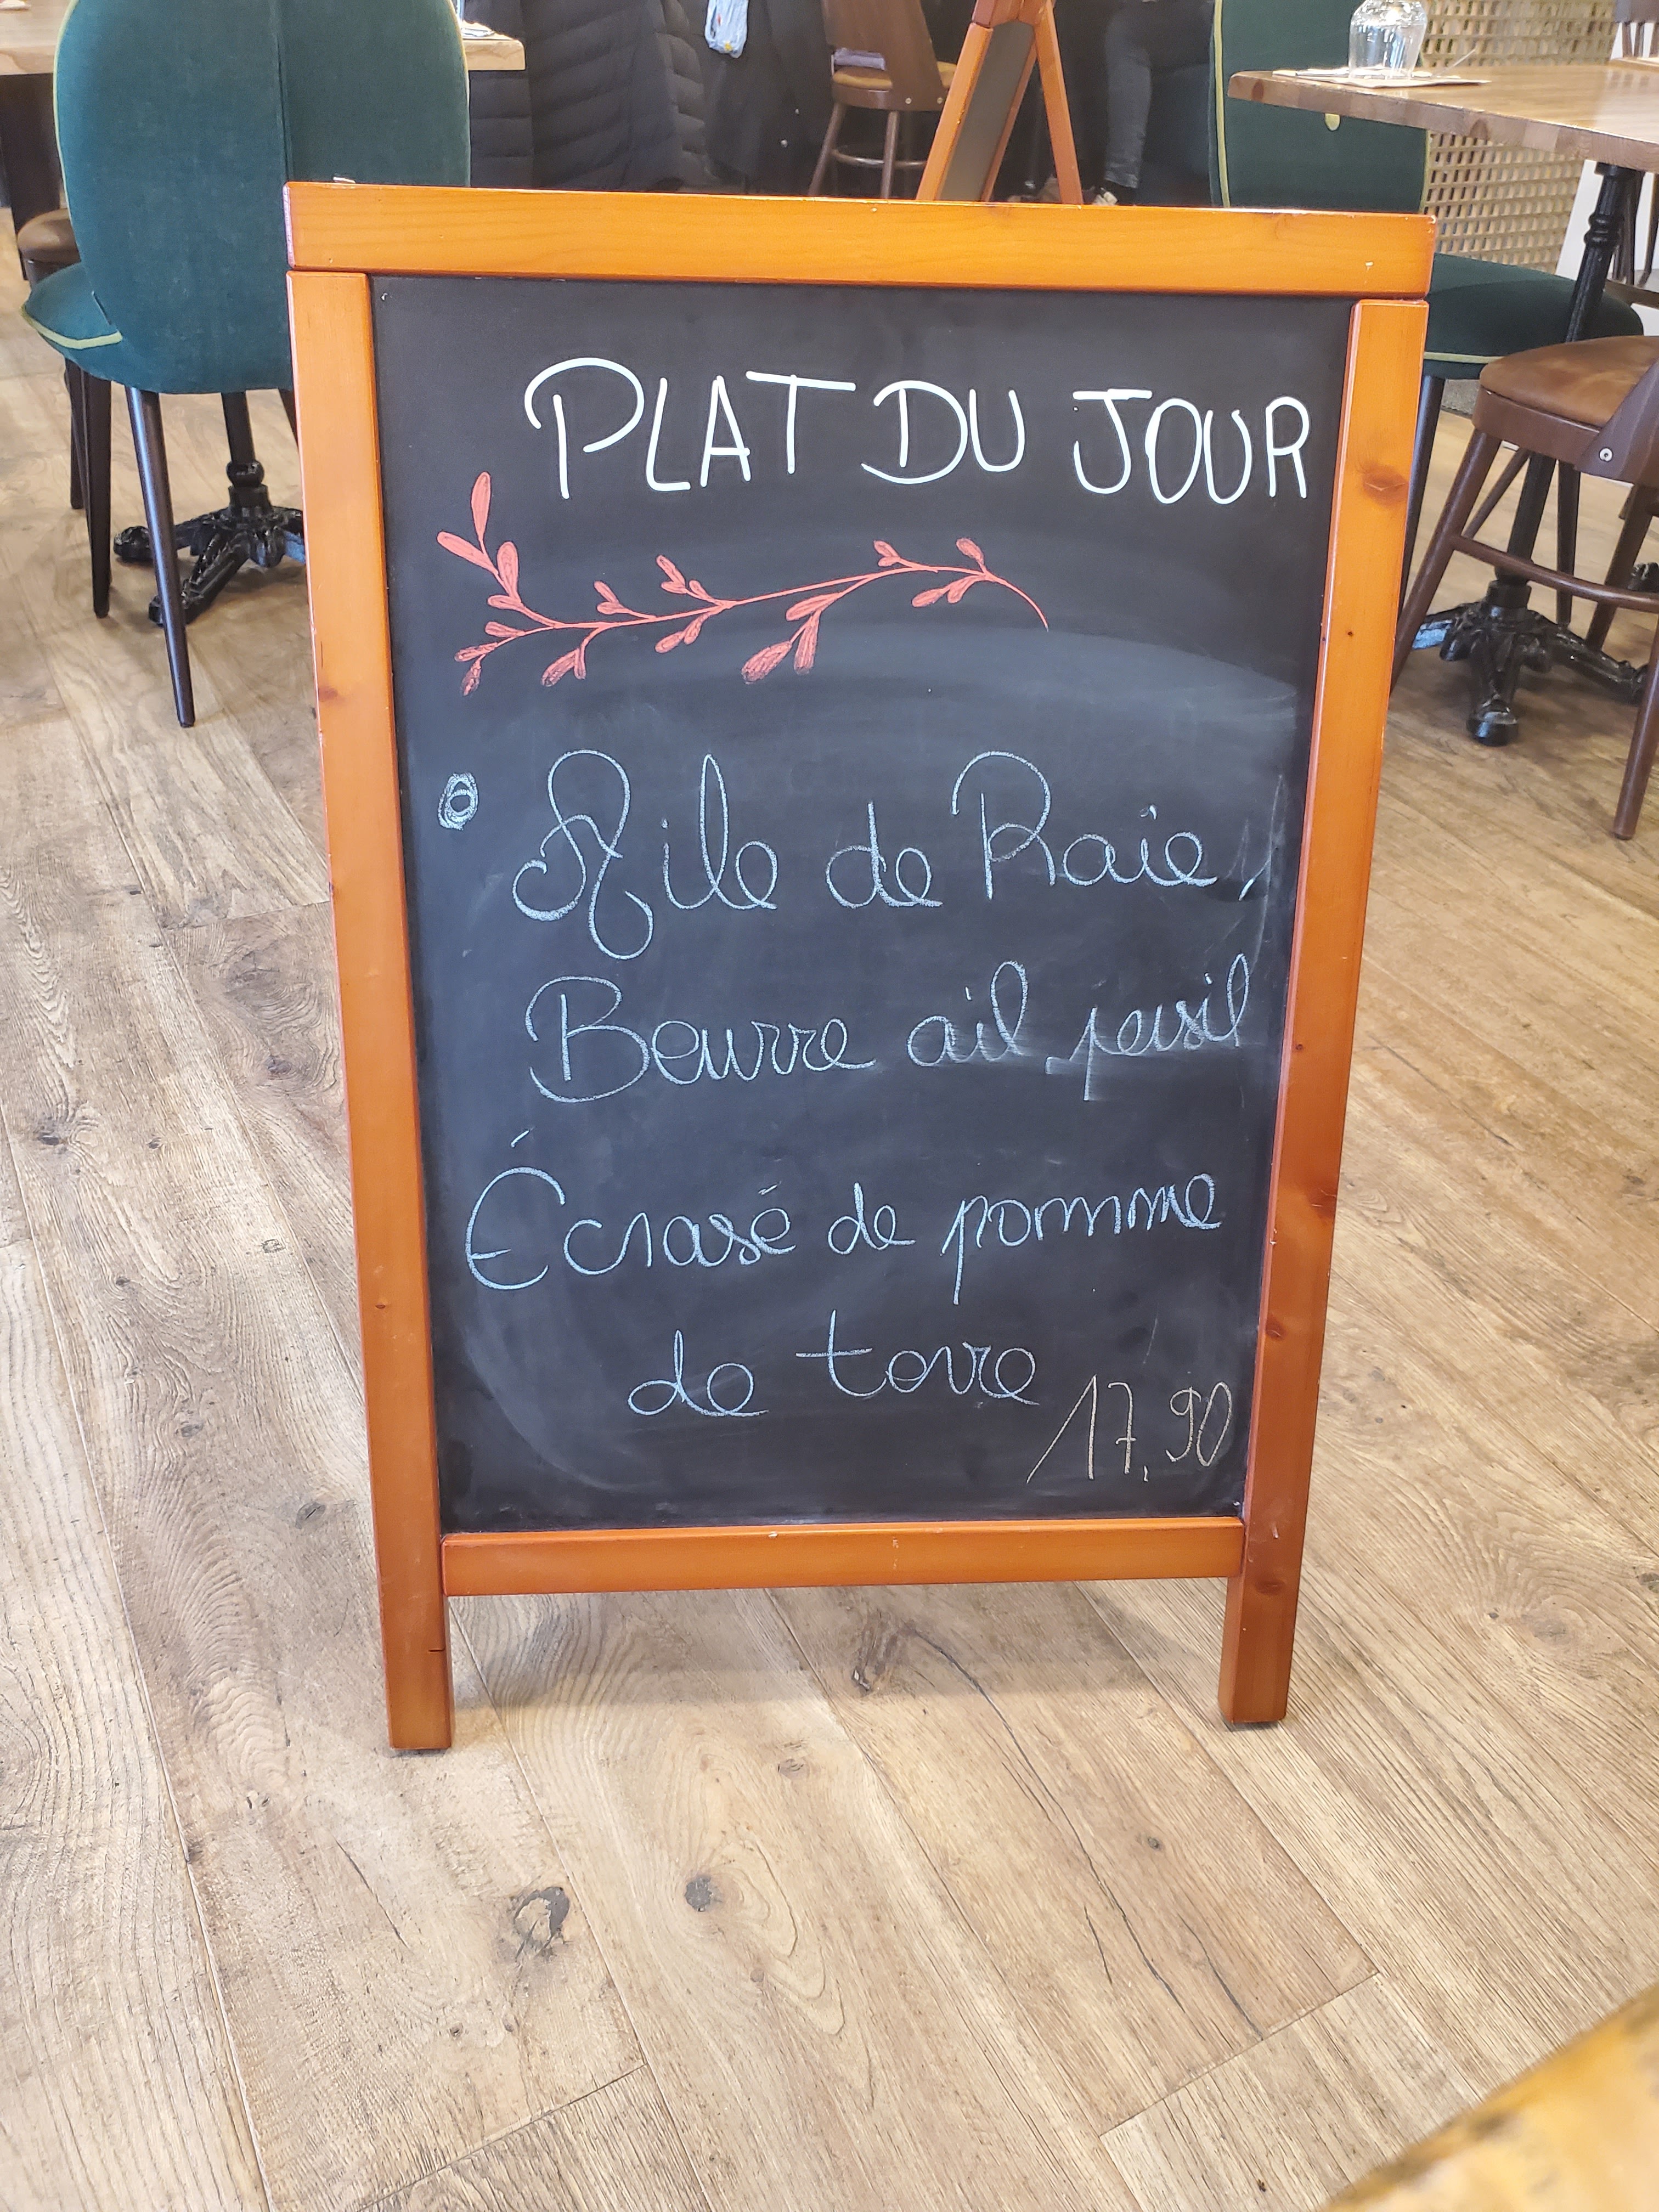 PLAT DU JOUR
Aile de Raie,
Beurre ail persil
Écrasé de pomme
de terre
17,90